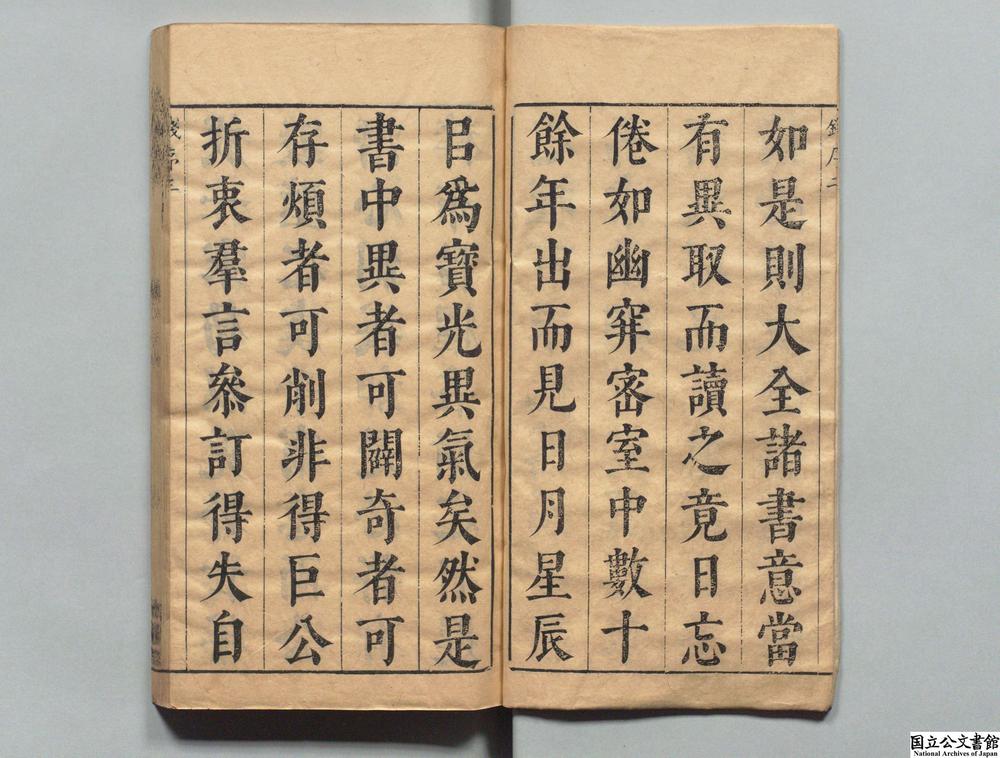 如是則大全諸書意當
有異取而讀之竟日忘
倦如幽穽宻室中數十
餘年出而見日月星辰
㠯爲寶光異氣矣然是
書中異者可闢奇者可
存煩者可削非得巨公
折衷羣言叅訂得失自
国立公文書館
National Archives of Japan